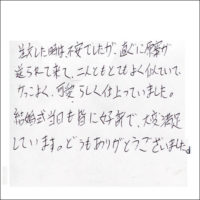 注文した時は、不安でしたが、直ぐに原案が
送られて来て、二人ともとてもよく似ていて、
かっこよく、可愛らしく仕上っていました。
結婚式当日も皆に好評で、大変満足
しています。どうもありがとうございました。